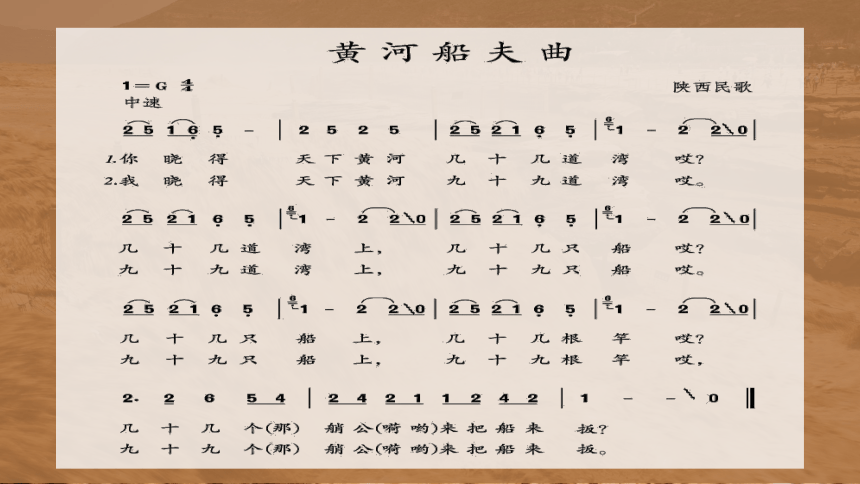 黄河船夫曲
1=G 4/4 陕西民歌
中速
2 5 1 6 5 - | 2 5 2 5 | 2 5 2 1 6 5 | 6 1 - 2 2\0 |
1.你 晓 得 天 下 黄 河 几 十 几 道 湾 哎?
2.我 晓 得 天 下 黄 河 九 十 九 道 湾 哎。
2 5 2 1 6 5 | 6 1 - 2 2\0 | 2 5 2 1 6 5 | 6 1 - 2 2\0 |
几 十 几 道 湾 上, 几 十 几 只 船 哎?
九 十 九 道 湾 上, 九 十 九 只 船 哎。
2 5 2 1 6 5 | 6 1 - 2 2\0 | 2 5 2 1 6 5 | 6 1 - 2 2\0 |
几 十 几 只 船 上, 几 十 几 根 竿 哎?
九 十 九 只 船 上, 九 十 九 根 竿 哎,
2. 2 6 5 4 | 2 4 2 1 1 2 4 2 | 1 - -\ 0 ‖
几 十 几 个(那) 艄 公(嗬 哟)来 把 船 来 扳?
九 十 九 个(那) 艄 公(嗬 哟)来 把 船 来 扳。